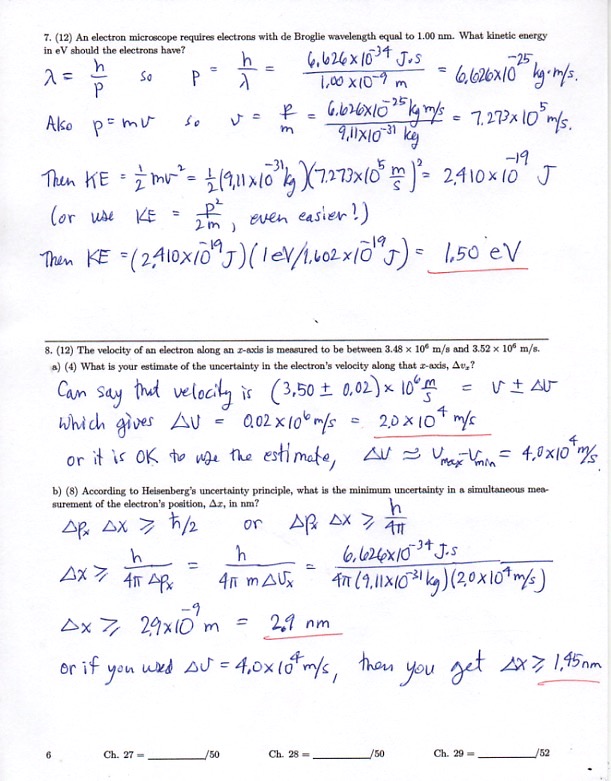 7. (12) An electron microscope requires electrons with de Broglie wavelength equal to 1.00 nm. What kinetic energy
in eV should the electrons have?
λ = h/p so p = h/λ = 6.626×10⁻³⁴ J·s / 1.00×10⁻⁹ m = 6.626×10⁻²⁵ kg·m/s.
Also p = mv so v = p/m = 6.626×10⁻²⁵ kg m/s / 9.11×10⁻³¹ kg = 7.273×10⁵ m/s.
Then KE = ½mv² = ½(9.11×10⁻³¹ kg)(7.273×10⁵ m/s)² = 2.410×10⁻¹⁹ J
(or use KE = p²/2m, even easier!)
Then KE = (2.410×10⁻¹⁹ J)(1eV/1.602×10⁻¹⁹ J) = 1.50 eV
8. (12) The velocity of an electron along an x-axis is measured to be between 3.48 × 10⁶ m/s and 3.52 × 10⁶ m/s.
a) (4) What is your estimate of the uncertainty in the electron's velocity along that x-axis, Δvₓ?
Can say that velocity is (3.50 ± 0.02)×10⁶ m/s = v ± Δv
which gives Δv = 0.02×10⁶ m/s = 2.0×10⁴ m/s
or it is OK to use the estimate, Δv ≈ Vmax−Vmin = 4.0×10⁴ m/s.
b) (8) According to Heisenberg's uncertainty principle, what is the minimum uncertainty in a simultaneous mea-
surement of the electron's position, Δx, in nm?
Δpₓ Δx ⩾ ℏ/2 or Δpₓ Δx ⩾ h/4π
Δx ⩾ h/4π Δpₓ = h/4π m Δvₓ = 6.626×10⁻³⁴ J·s / 4π(9.11×10⁻³¹ kg)(2.0×10⁴ m/s)
Δx ⩾ 2.9×10⁻⁹ m = 2.9 nm
or if you used Δv = 4.0×10⁴ m/s, then you get Δx ⩾ 1.45 nm
6 Ch. 27 = ________/50 Ch. 28 = ________/50 Ch. 29 = ________/52